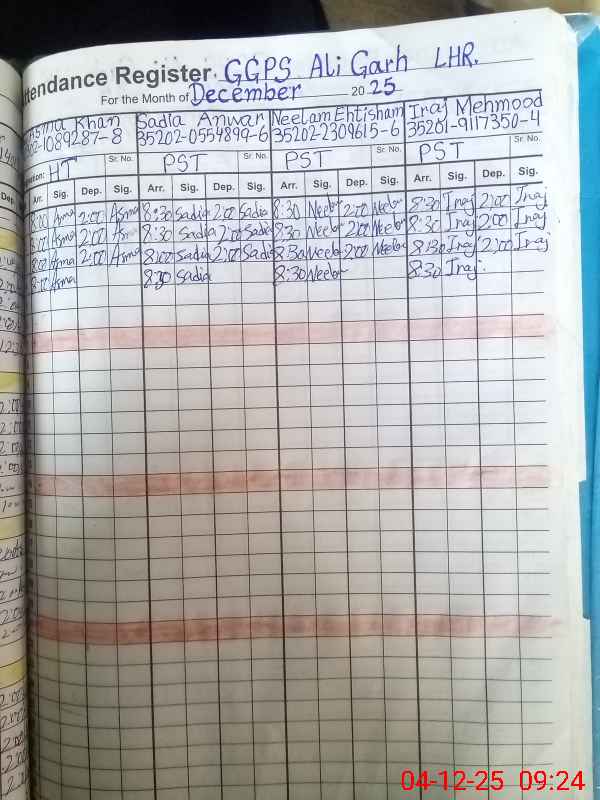 ttendance Register. GGPS Ali Garh LHR.
For the Month of December 2025
Asma Khan Sadia Anwar Neelam Ehtisham Iraj Mehmood
1089287-8 35202-0554899-6 35202-2309615-6 35201-9117350-4
HT Sr. No. PST Sr. No. PST Sr. No. PST Sr. No.
Arr. Sig. Dep. Sig. Arr. Sig. Dep. Sig. Arr. Sig. Dep. Sig. Arr. Sig. Dep. Sig.
8:00 Asma 2:00 Asma 8:30 Sadia 2:00 Sadia 8:30 Neelam 2:00 Neelam 8:30 Iraj 2:00 Iraj
8:00 Asma 2:00 Asma 8:30 Sadia 2:00 Sadia 8:30 Neelam 2:00 Neelam 8:30 Iraj 2:00 Iraj
8:00 Asma 2:00 Asma 8:00 Sadia 2:00 Sadia 8:30 Neelam 2:00 Neelam 8:30 Iraj 2:00 Iraj
Asma 8:30 Sadia 8:30 Neelam 8:30 Iraj.
04-12-25 09:24